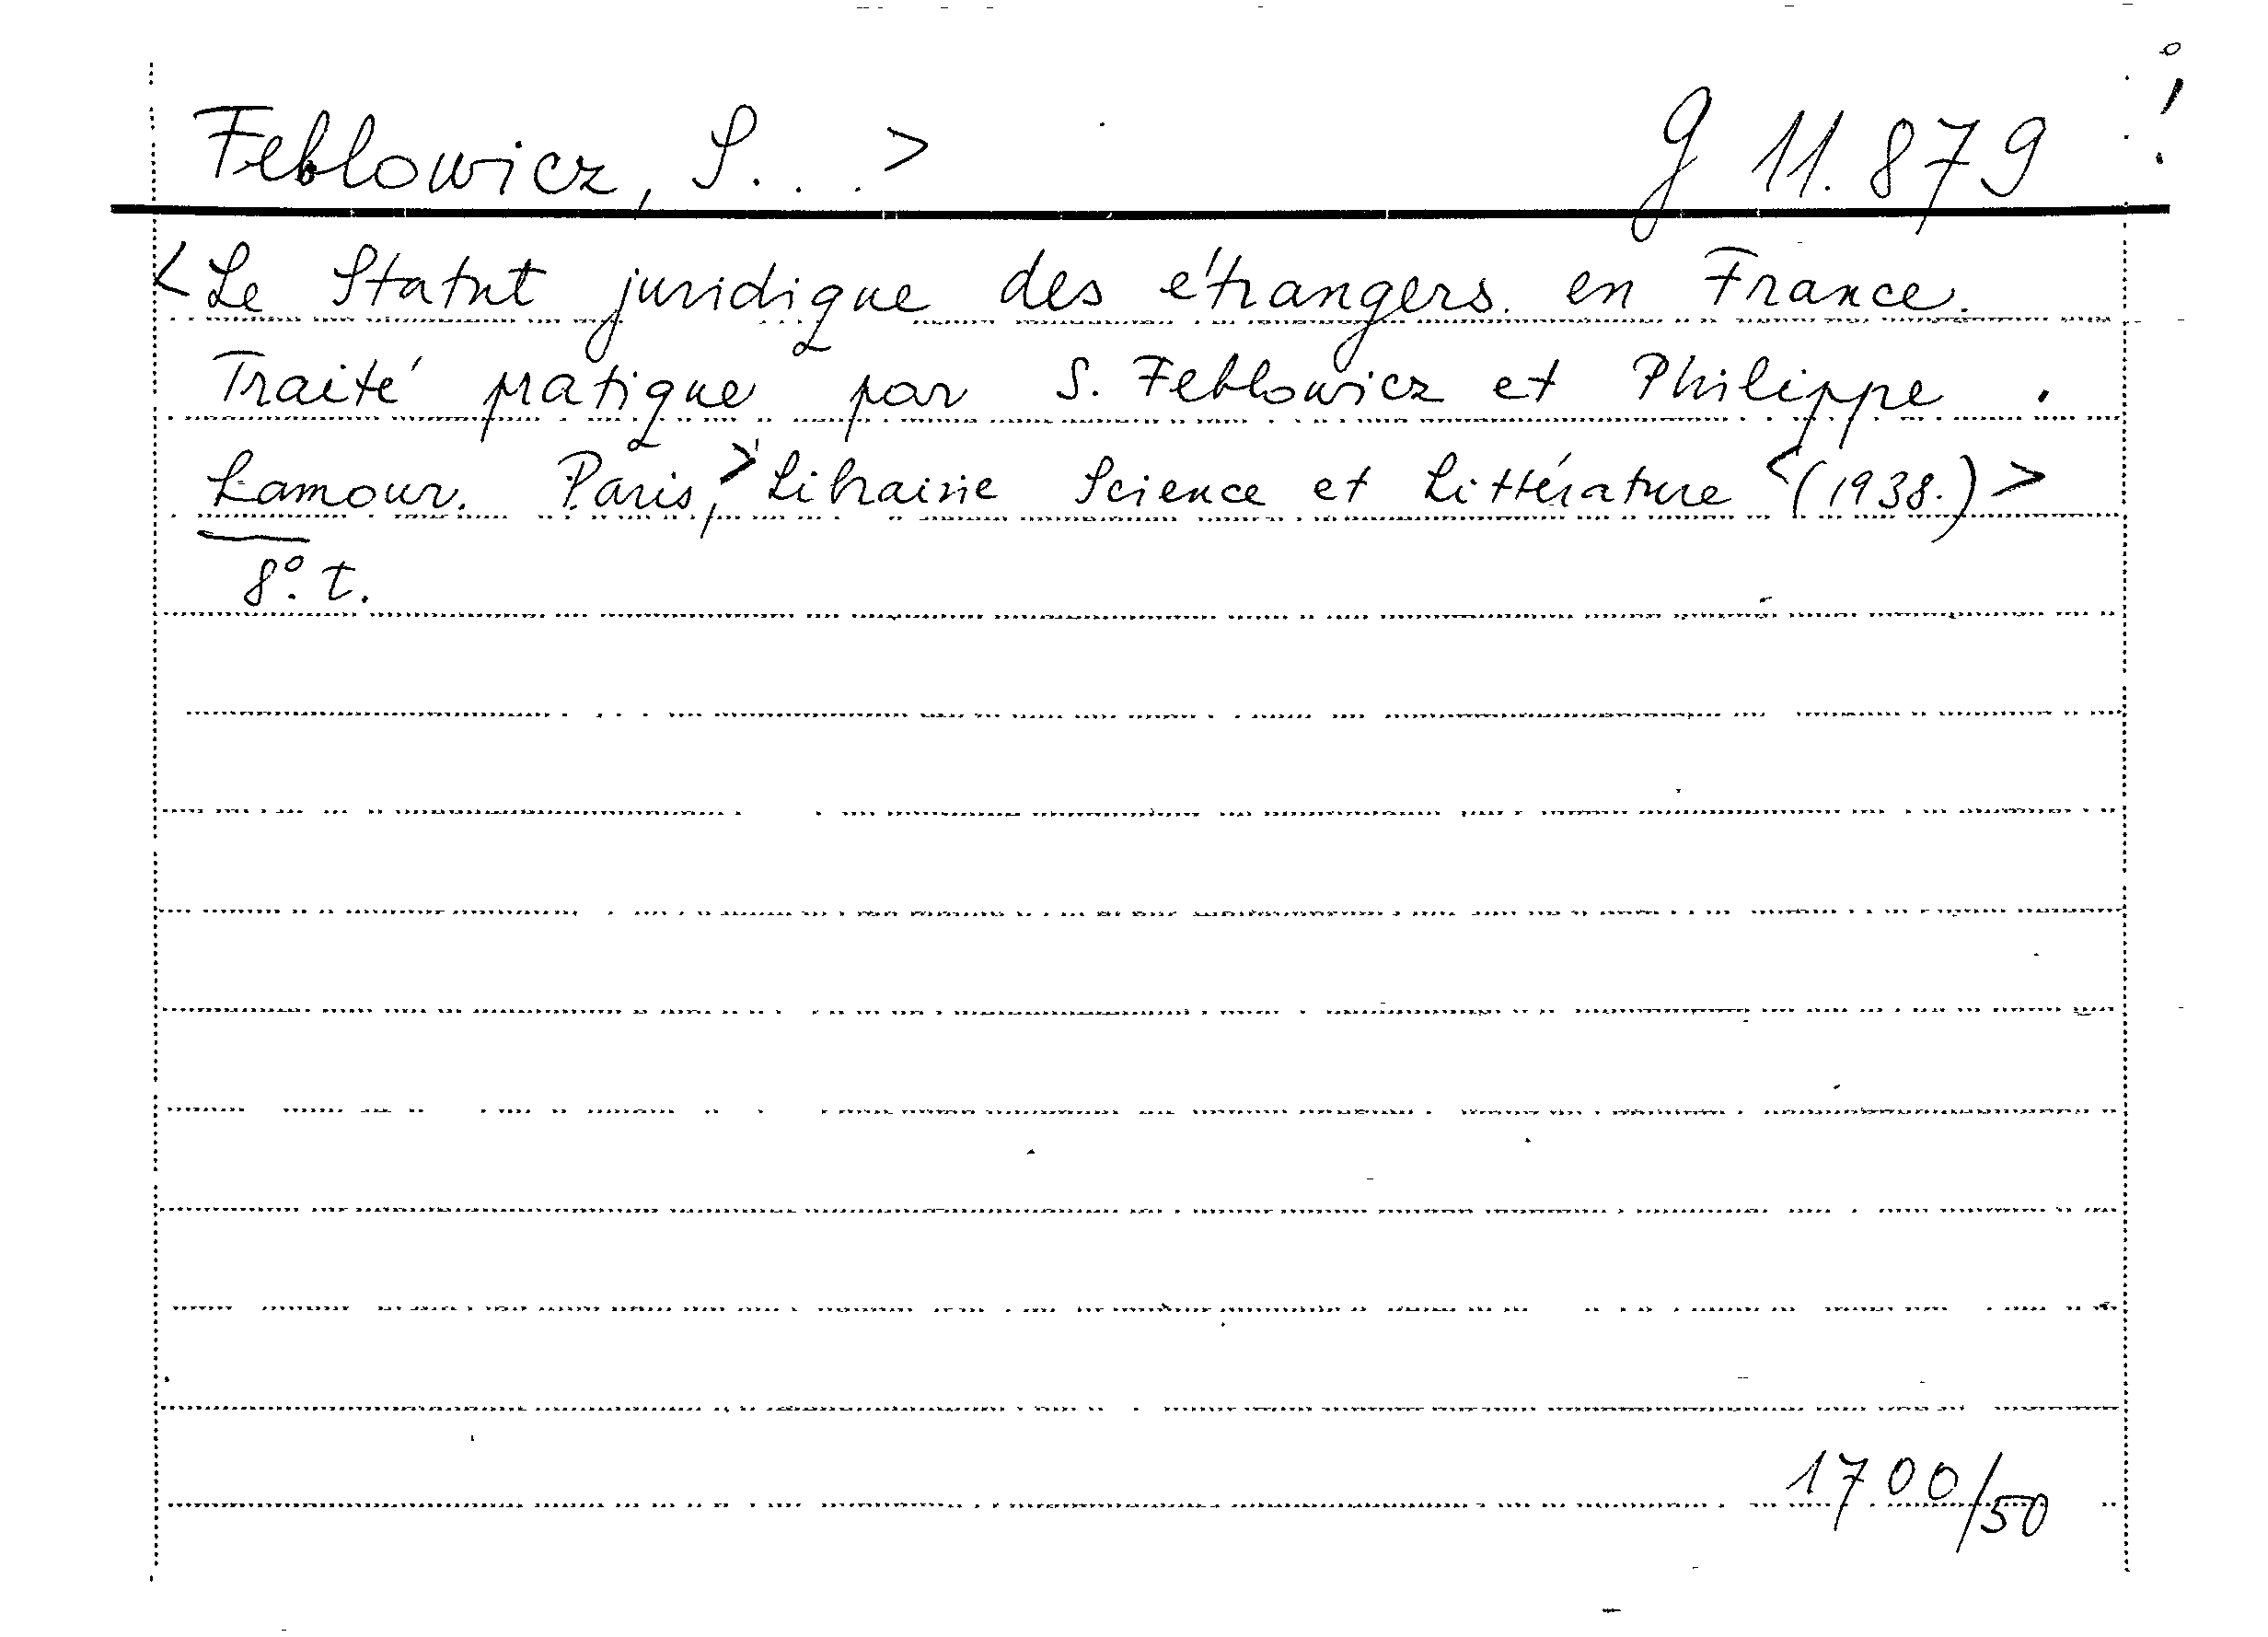 Feblowicz, S. . . > g 11.879
<Le Statut juridique des étrangers en France.
Traité pratique par S. Feblowicz et Philippe
Lamour. Paris,> Librairie Science et Littérature <(1938.)>
8°. t.
1700/50